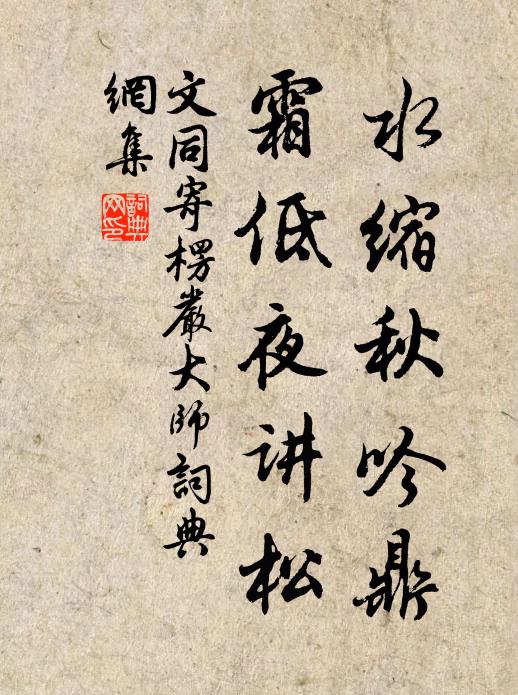 水缩秋吟鼎
霜低夜讲松
文同寄楞嚴大師詞典
網集
詞典
网印